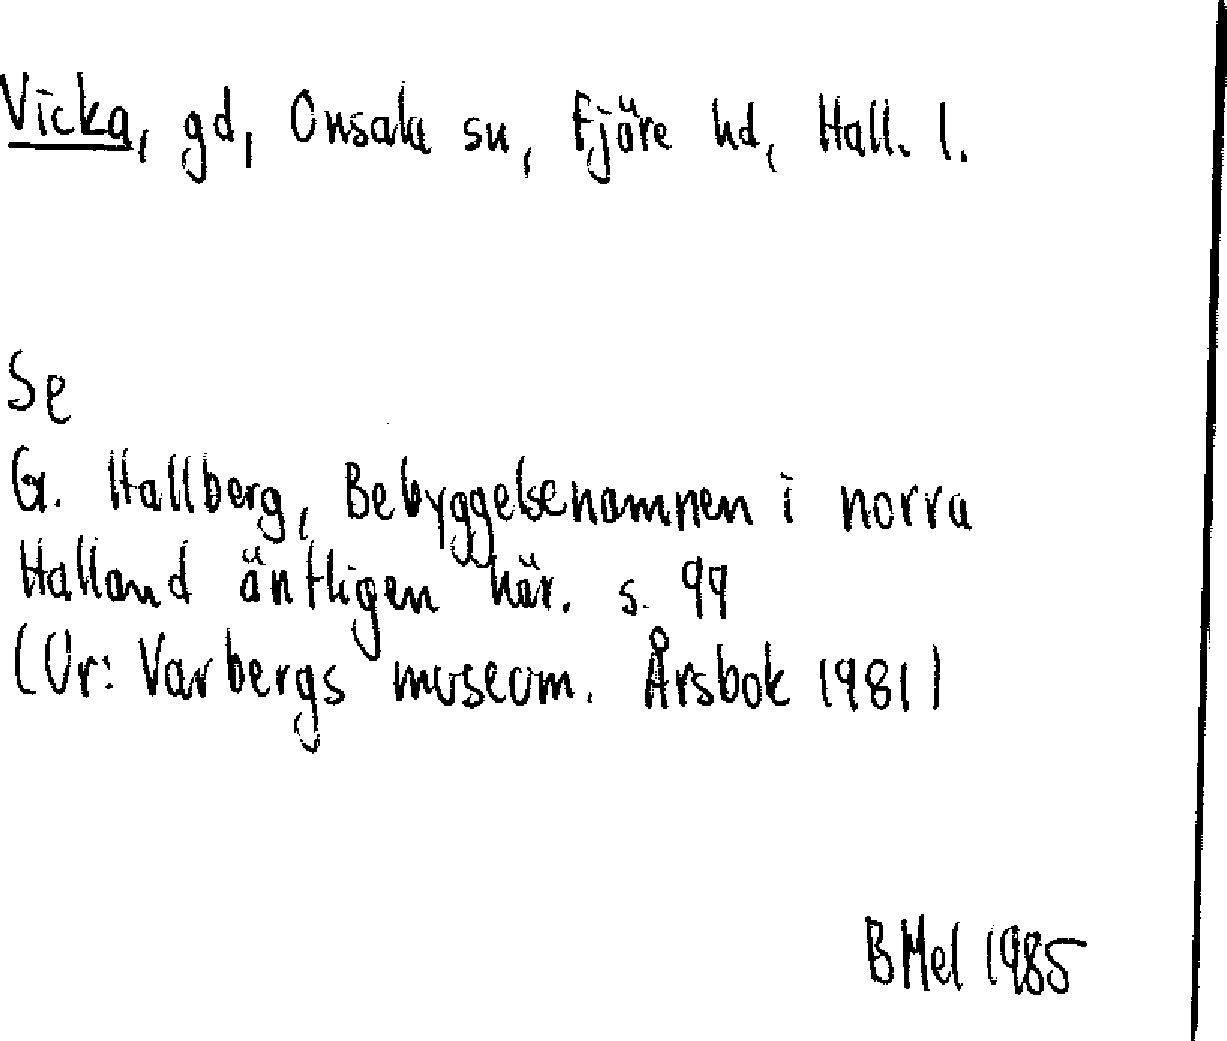 Vicka, gd, Onsala sn, Fjäre hd, Hall. l.
Se
G. Hallberg, Bebyggelsenamnen i norra
Halland äntligen här. s. 99
(Ur: Varbergs museum. Årsbok 1981)
BMel 1985